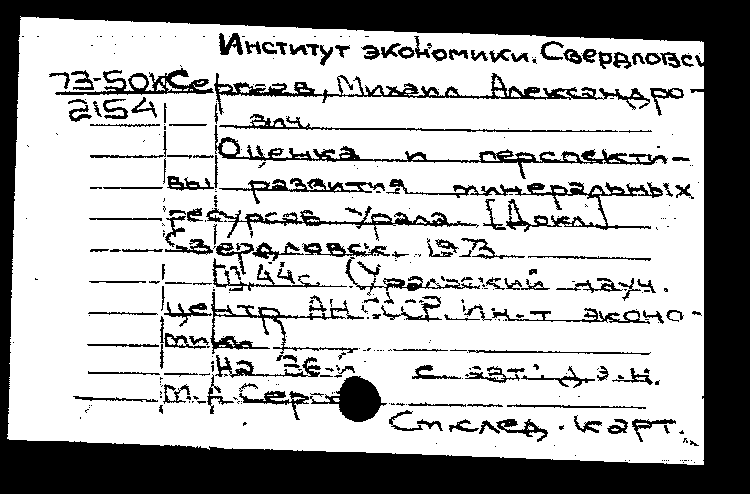 Институт экономики. Свердловск
73-50К Сергеев, Михаил Александро-
2154 вич.
Оценка и перспекти-
вы развития минеральных
ресурсов Урала. [Докл.]
Свердловск. 1973
[I], 44 с. (Уральский науч.
центр АН СССР. Ин-т эконо-
мики)
На 36-й с авт.: д.э.н.
М.А Серге
См. след. карт.